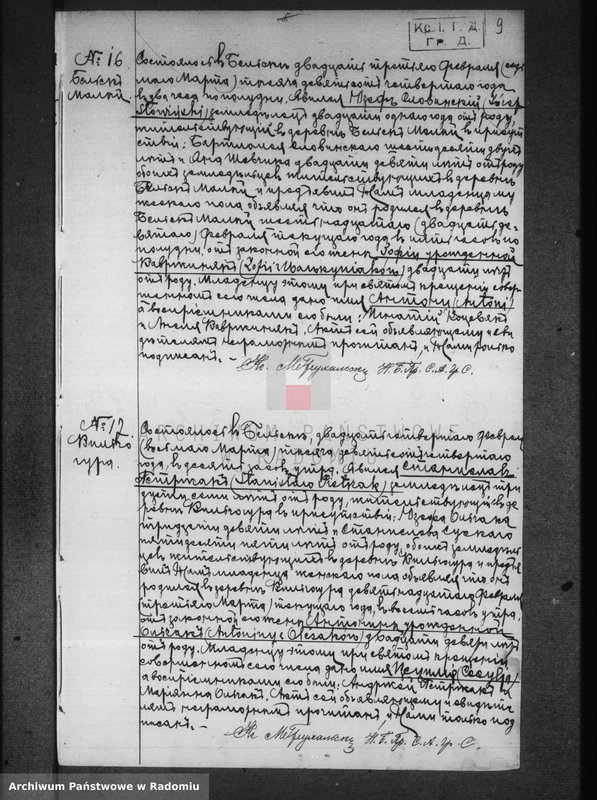 Кс. I. Г. Д.
Гр. Д.
9
№ 16
Бельск
Малый
Состоялось в Бельске двадцать третьего Февраля (седь
маго Марта) тысяча девятьсот четвертаго года
в два часа по полудни. Явился Юзеф Словинский (Józef
Słowiński) земледелец двадцати одного года от роду,
жительствующий в деревне Бельск Малый в присутс
ствии: Бартломея Словинскаго шестидесяти двух
лет и двадцати девяти лет от роду
обоих земледельцев жительствующих в деревне
Бельск Малый и предъявил Нам младенца му
жескаго пола объявляя что он родился в деревне
Бельск Малый шестнадцатаго (двадцать де
вятаго) Февраля текущаго года в пять часов по
полудни, от законной его жены Зофии урожденной
Вавржиняк (Zofii z Wawrzyniaków) двадцати лет
от роду. Младенцу этому при святом крещении совер
шенном сего числа дано имя Антони (Antoni)
а восприемниками его были: Игнатий
и Вавржиняк. Акт сей объявляющему и сви
детелям неграмотным прочитан, и Нами только
подписан. –
№ 17
Вилько
гура.
Состоялось в Бельске, двадцать четвертаго Февраля
(восьмаго Марта) тысяча девятьсот четвертаго
года, в десять часов утра. Явился Станислав
Петржак (Stanisław Pietrzak) земледелец три
дцати семи лет от роду, жительствующий в де
ревне Вилькогура в присутствии: Юзефа
тридцати девяти лет и Станислава
пятидесяти пяти лет от роду, обоих земледель
цев жительствующих в деревне Вилькогура и предъя
вил Нам младенца женскаго пола объявляя что он
родился в деревне Вилькогура девятнадцатаго Февраля
(третьяго Марта) текущаго года, в восемь часов утра,
от законной его жены Антонины урожденной
(Antoniny z Olczaków) двадцати девяти лет
от роду. Младенцу этому при святом крещении
совершенном сего числа дано имя
а восприемниками его были: Андржей Петржак и
Марианна Акт сей объявляющему и свидете
лям неграмотным прочитан и Нами только под
писан. –
Archiwum Państwowe w Radomiu